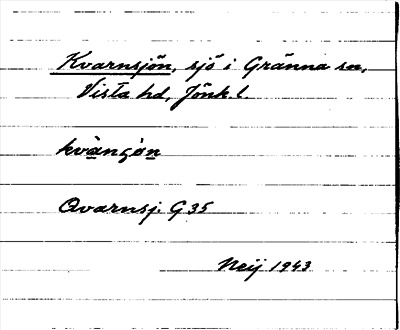 Kvarnsjön, sjö i Gränna sn,
Vista hd, Jönk. l
kvànʂön
Qvarnsj. G 35
Neij 1943